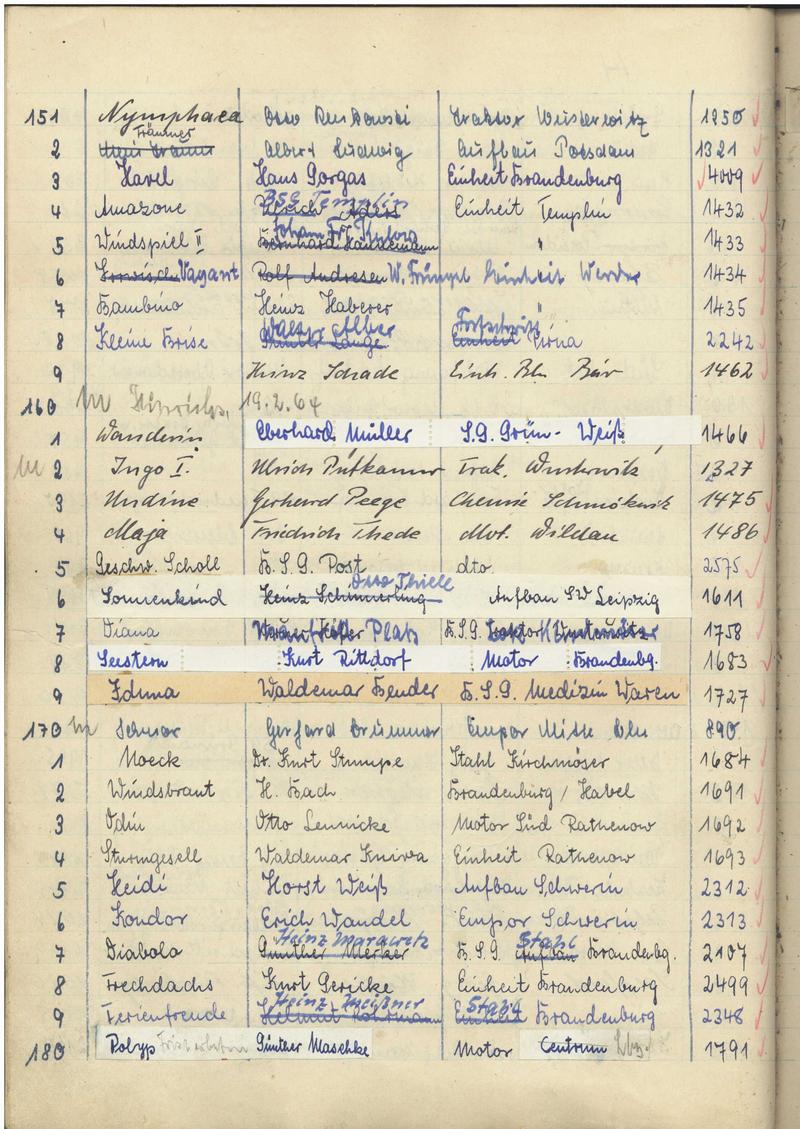 151 Nymphaea Otto Traktor Wusterwitz 1250
Träumer
2 Albert Ludwig Aufbau Potsdam 1321
3 Havel Hans Gorgas Einheit Brandenburg 4009
BSG Templin
4 Amazone Ulrich Einheit Templin 1432
Johann Fr.
5 Windspiel II Bernhard " 1433
6 Vagant Rolf Andresen W. Einheit Werder 1434
7 Bambino Heinz Haberer " 1435
Walter Fortschritt
8 Kleine Brise Lange Einheit Pirna 2242
9 Heinz Schade Einh. Bln Bär 1462
160 m Hinrichs, 19.2.64
1 Wanderin Eberhard Müller S.G. Grün-Weiß 1466
m 2 Ingo I. Ulrich Trak. Wusterwitz 1327
3 Undine Gerhard Peege Chemie Schmökwitz 1475
4 Maja Friedrich Thede Mot. Wildau 1486
5 Geschw. Scholl B.S.G. Post dto. 2575
Otto Thiele
6 Sonnenkind Heinz Aufbau SW Leipzig 1611
7 Diana Platz B.S.G. Traktor Wusterwitz 1758
8 Seestern Kurt Rittdorf Motor Brandenbg. 1683
9 Iduna Waldemar Bender B.S.G. Medizin Waren 1727
170 m Gerhard Brümmer Empor Mitte Bln 890
1 Moeck Dr. Kurt Stumpe Stahl Kirchmöser 1684
2 Windsbraut H. Bach Brandenburg / Havel 1691
3 Odin Otto Lennicke Motor Süd Rathenow 1692
4 Sturmgesell Waldemar Einheit Rathenow 1693
5 Heidi Horst Weiß Aufbau Schwerin 2312
6 Kondor Erich Wandel Empor Schwerin 2313
Heinz Stahl
7 Diabolo Günther Merker B.S.G. Aufbau Brandenbg. 2107
8 Frechdachs Kurt Gericke Einheit Brandenburg 2499
Heinz Meißner Stahl
9 Ferienfreude Helmut Einheit Brandenburg 2348
180 Polyp Günther Maschke Motor Centrum 1791